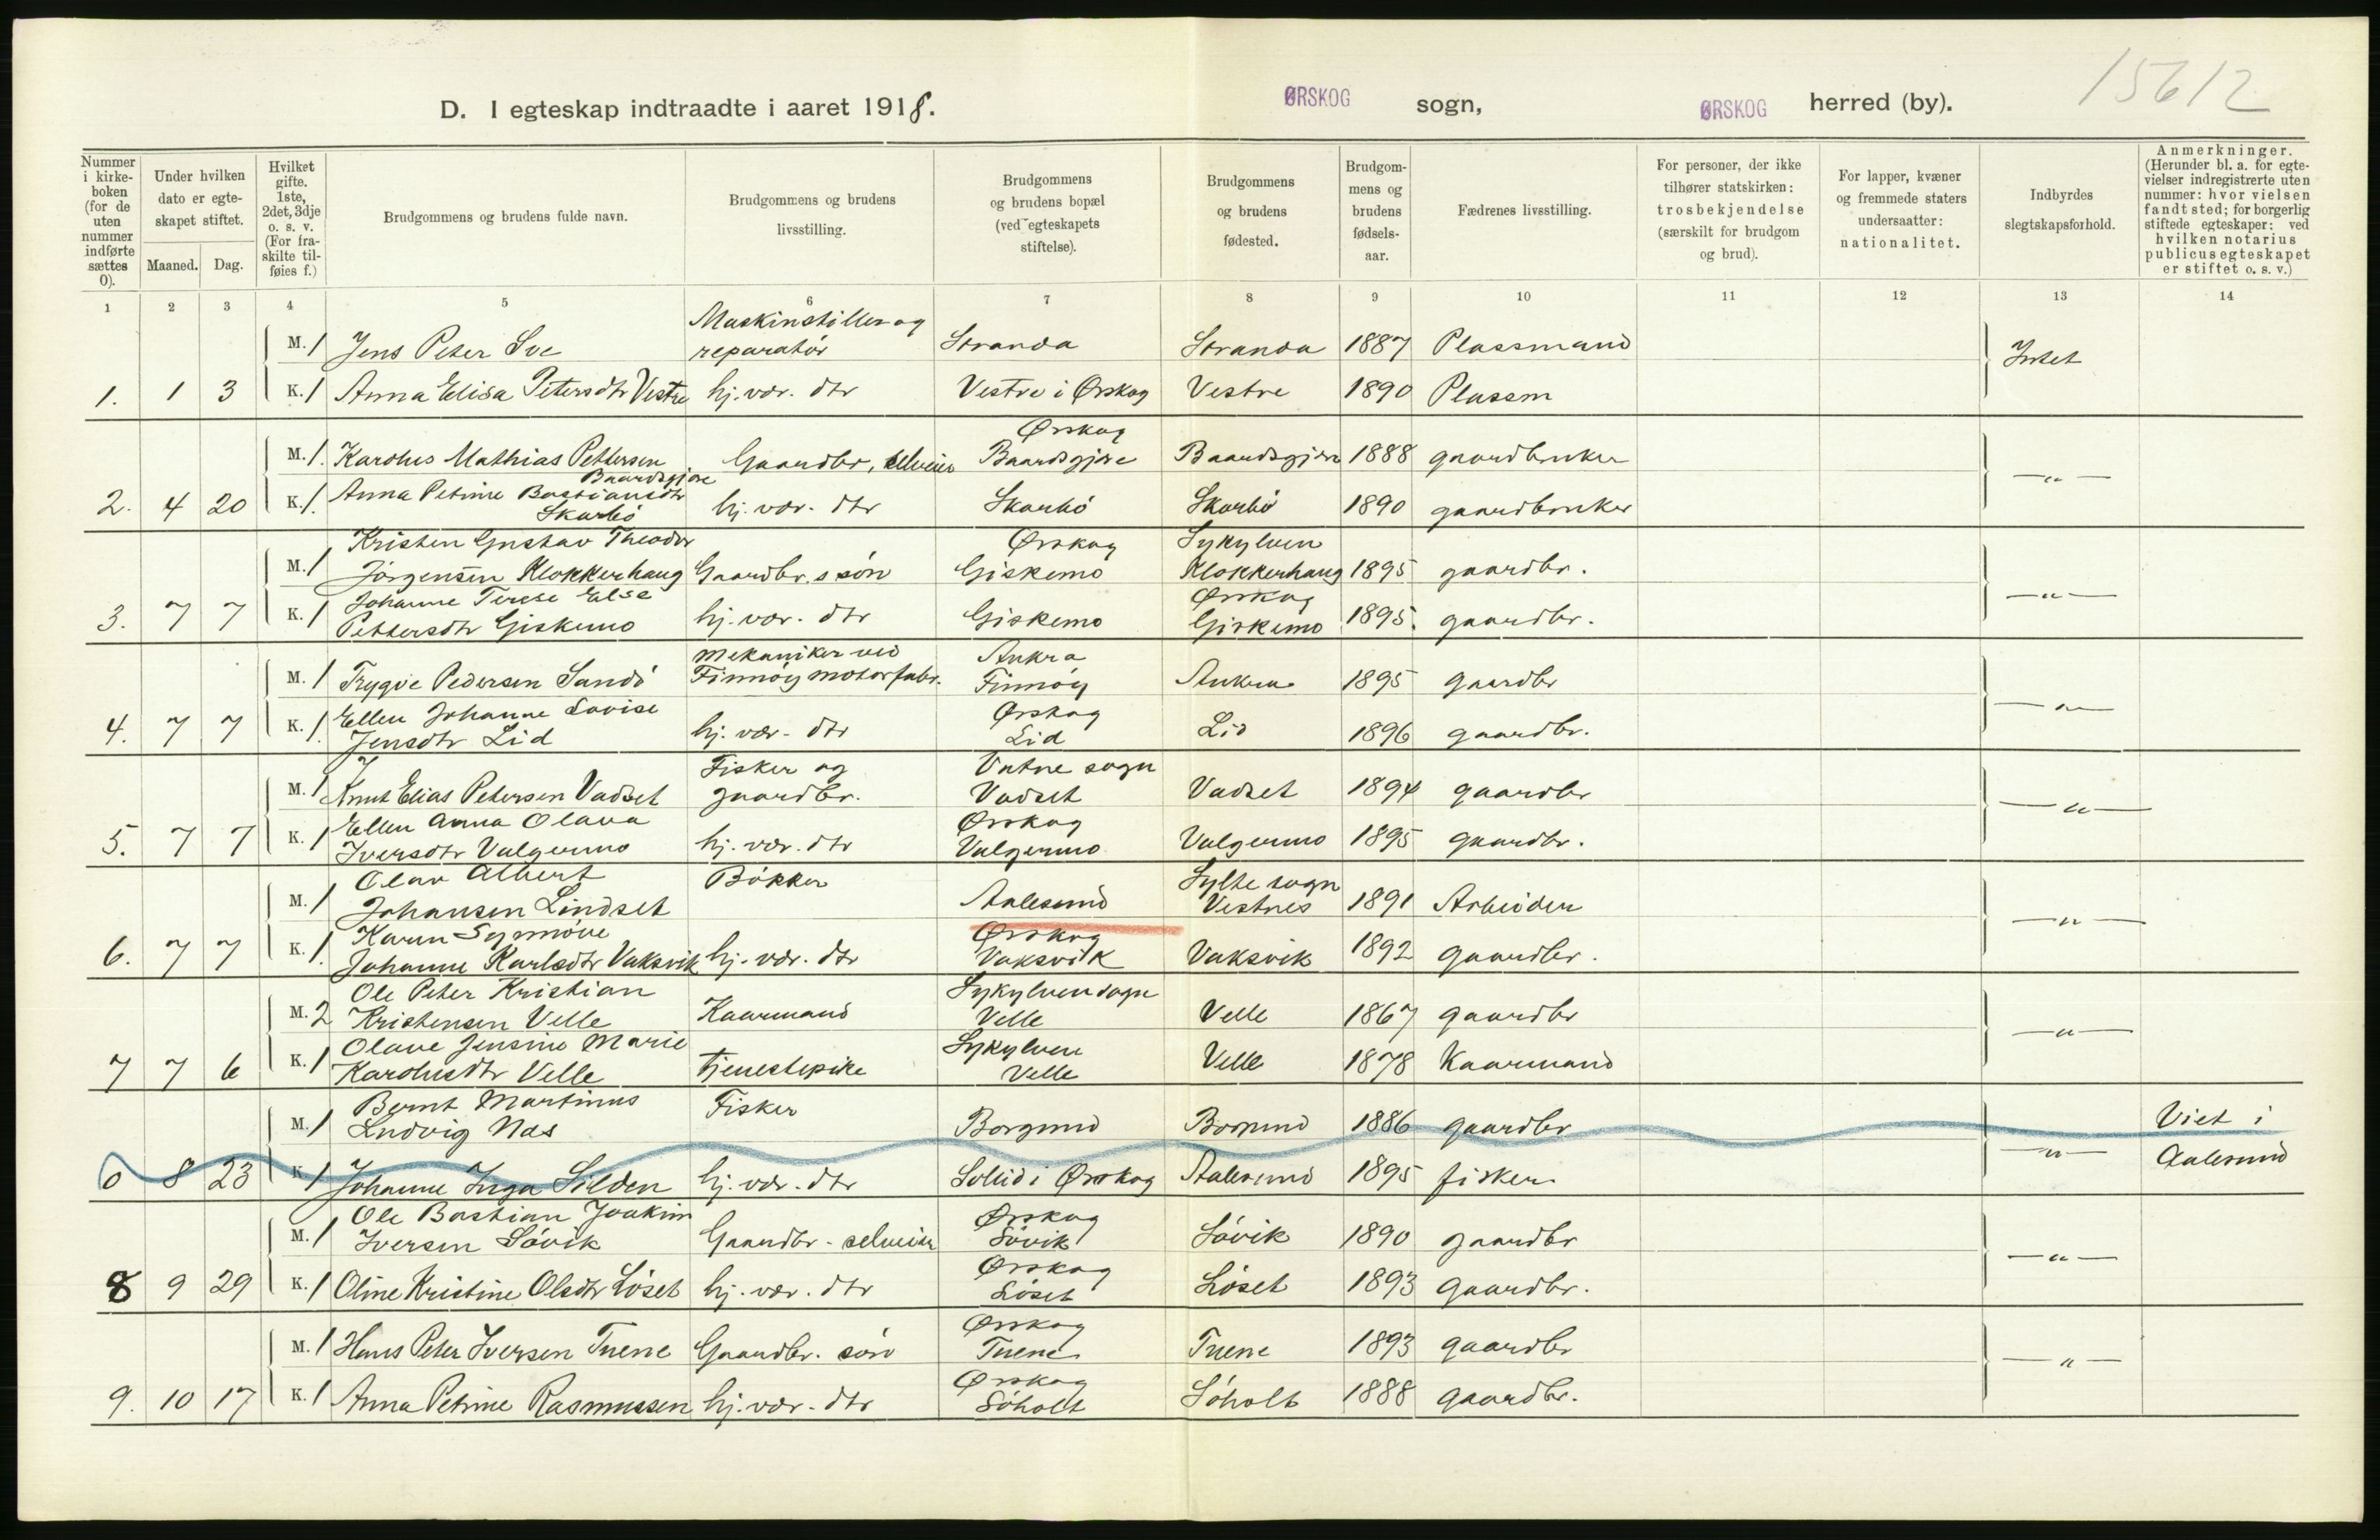 15612
D. I egteskap indtraadte i aaret 1918. ØRSKOG sogn, ØRSKOG herred (by).
Nummer i kirkeboken (for de uten nummer indførte sættes 0).
Under hvilken dato er egteskapet stiftet.
Maaned. Dag.
Hvilket gifte. 1ste, 2det, 3dje o. s. v. (For fraskilte tilføies f.)
Brudgommens og brudens fulde navn.
Brudgommens og brudens livsstilling.
Brudgommens og brudens bopæl (ved egteskapets stiftelse).
Brudgommens og brudens fødested.
Brudgommens og brudens fødselsaar.
Fædrenes livsstilling.
For personer, der ikke tilhører statskirken: trosbekjendelse (særskilt for brudgom og brud).
For lapper, kvæner og fremmede staters undersaatter: nationalitet.
Indbyrdes slegtskapsforhold.
Anmerkninger. (Herunder bl. a. for egtevielser indregistrerte uten nummer: hvor vielsen fandt sted; for borgerlig stiftede egteskaper: ved hvilken notarius publicus egteskapet er stiftet o. s. v.)
1 2 3 4 5 6 7 8 9 10 11 12 13 14
M. 1 Jens Peter Sve Maskinstiller og reparatör Stranda Stranda 1887 Plassmand Intet
1. 1 3 K. 1 Anna Elisa Petersdtr Vestre hj. vær. dtr Vestre i Ørskog Vestre 1890 Plassm
M. 1. Karolus Mathias Pettersen Baardsgjære Gaardbr, selveier Ørskog Baardsgjære Baardsgjære 1888 gaardbruker — " —
2. 4 20 K. 1. Anna Petrine Bastiansdtr Skarbö hj. vær. dtr Skarbö Skarbö 1890 gaardbruker
M. 1 Kristen Gustav Theodor Jörgensen Klokkerhaug Gaardbr.s sön Ørskog Giskemo Sykylven Klokkerhaug 1895 gaardbr. — " —
3. 7 7 K. 1 Johanne Terese Else Pettersdtr Giskemo hj. vær. dtr Giskemo Ørskog Giskemo 1895. gaardbr.
M. 1 Trygve Pedersen Sandö mekaniker ved Finnöy motorfabr. Aukra Finnöy Aukra 1895 gaardbr — " —
4. 7 7 K. 1. Ellen Johanne Lovise Jensdtr Lid hj. vær. dtr Ørskog Lid Lid 1896 gaardbr.
M. 1 Knut Elias Petersen Vadset Fisker og gaardbr. Vatne sogn Vadset Vadset 1894 gaardbr — " —
5. 7 7 K. 1 Ellen Anna Olava Iversdtr Valgermo hj. vær. dtr Ørskog Valgermo Valgermo 1895 gaardbr.
M. 1 Olav Albert Johansen Lindset Bökker Aalesund Sylte sogn Vestnes 1891 Arbeider — " —
6. 7 7 K. 1. Karen Synnöve Johanne Karlsdtr Vaksvik hj. vær. dtr Ørskog Vaksvik Vaksvik 1892 gaardbr.
M. 2 Ole Peter Kristian Kristensen Velle Kaarmand Sykylven sogn Velle Velle 1867 gaardbr — " —
7 7 6 K. 1 Olave Jensine Marie Karolusdtr Velle tjenestepike Sykylven Velle Velle 1878 Kaarmand
M. 1 Bernt Martinus Ludvig Næs Fisker Borgund Borgund 1886 gaardbr — " — Viet i Aalesund
0 8 23 K 1 Johanne Inga Silden hj. vær. dtr Sollid i Ørskog Aalesund 1895 fisker
M. 1 Ole Bastian Joakim Iversen Sövik Gaardbr - selveier Ørskog Sövik Sövik 1890 gaardbr — " —
8 9 29 K. 1 Oline Kristine Olsdtr Löset hj. vær. dtr Ørskog Löset Löset 1893 gaardbr.
M. 1 Hans Peter Iversen Tuene Gaardbr. sön Ørskog Tuene Tuene 1893 gaardbr — " —
9. 10 17 K. 1 Anna Petrine Rasmussen hj. vær. dtr Ørskog Söholt Söholt 1888 gaardbr.